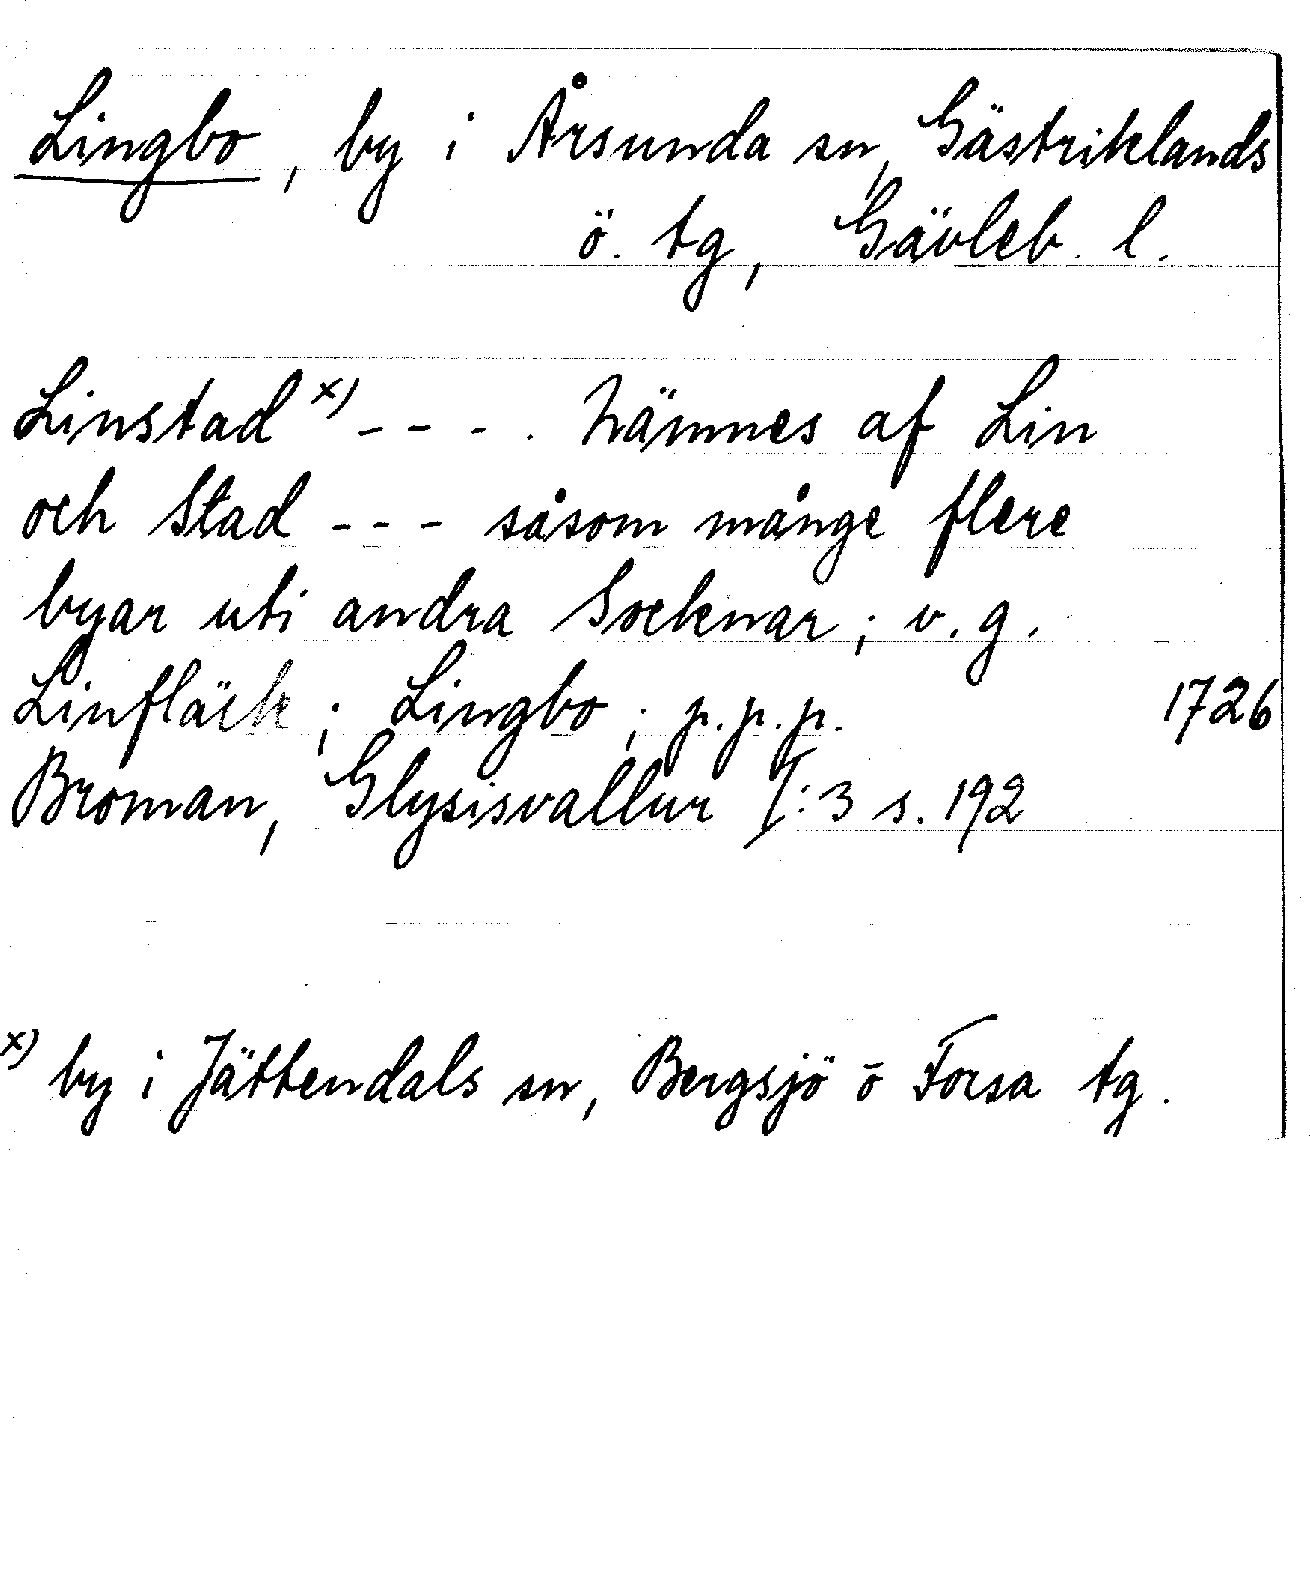 Lingbo, by i Årsunda sn, Gästriklands
ö. tg, Gävleb. l.
Linstad x) - - - . Nämnes af Lin
och Stad - - - såsom månge flere
byar uti andra Socknar; v. g.
Linfläck; Lingbo; p.p.p. 1726
Broman, Glysisvallur I:3 s. 192
x) by i Jättendals sn, Bergsjö o Forsa tg.